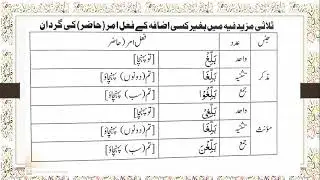 ثلاثی مزید فیہ میں بغیر کسی اضافہ کے فعل امر (حاضر) کی گردان
جنس عدد فعل امر (حاضر)
مذکر واحد بَلِّغْ [تو پہنچا]
تثنیہ بَلِّغَا [تم (دونوں) پہنچاؤ]
جمع بَلِّغُوْا [تم (سب) پہنچاؤ]
مؤنث واحد بَلِّغِیْ [تو پہنچا]
تثنیہ بَلِّغَا [تم (دونوں) پہنچاؤ]
جمع بَلِّغْنَ [تم (سب) پہنچاؤ]